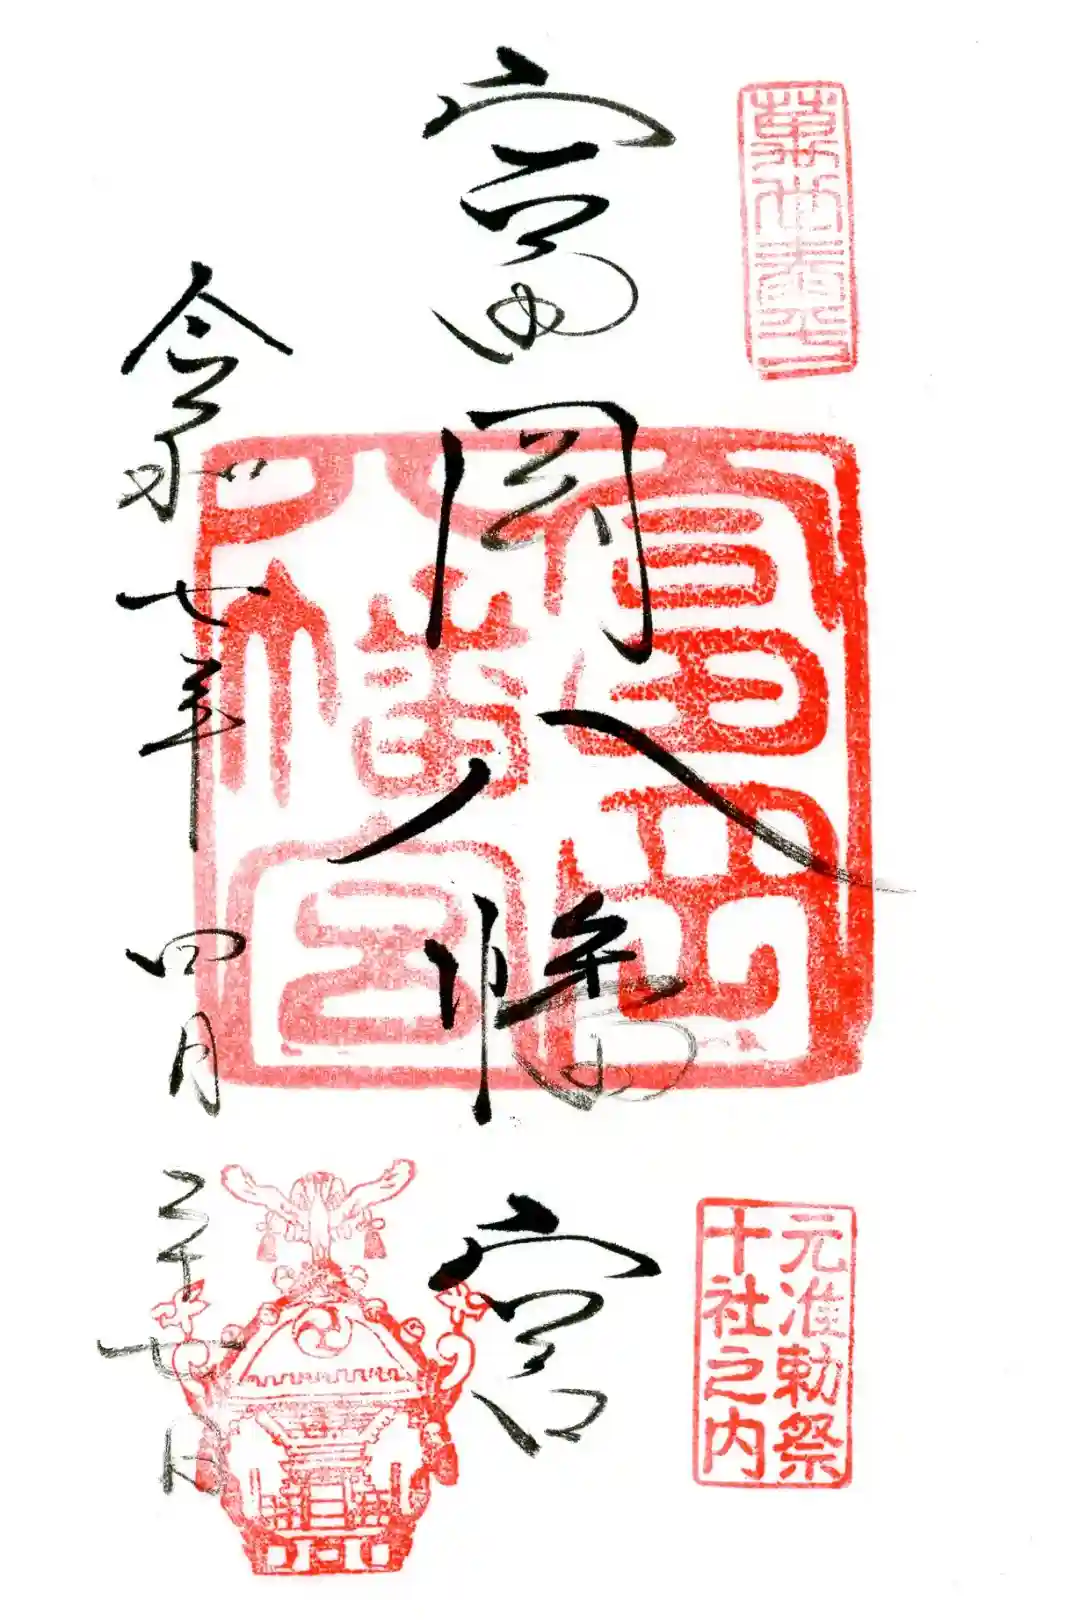 富岡八幡宮
富岡
八幡宮
元准勅祭
十社之内
令和七年四月二十七日